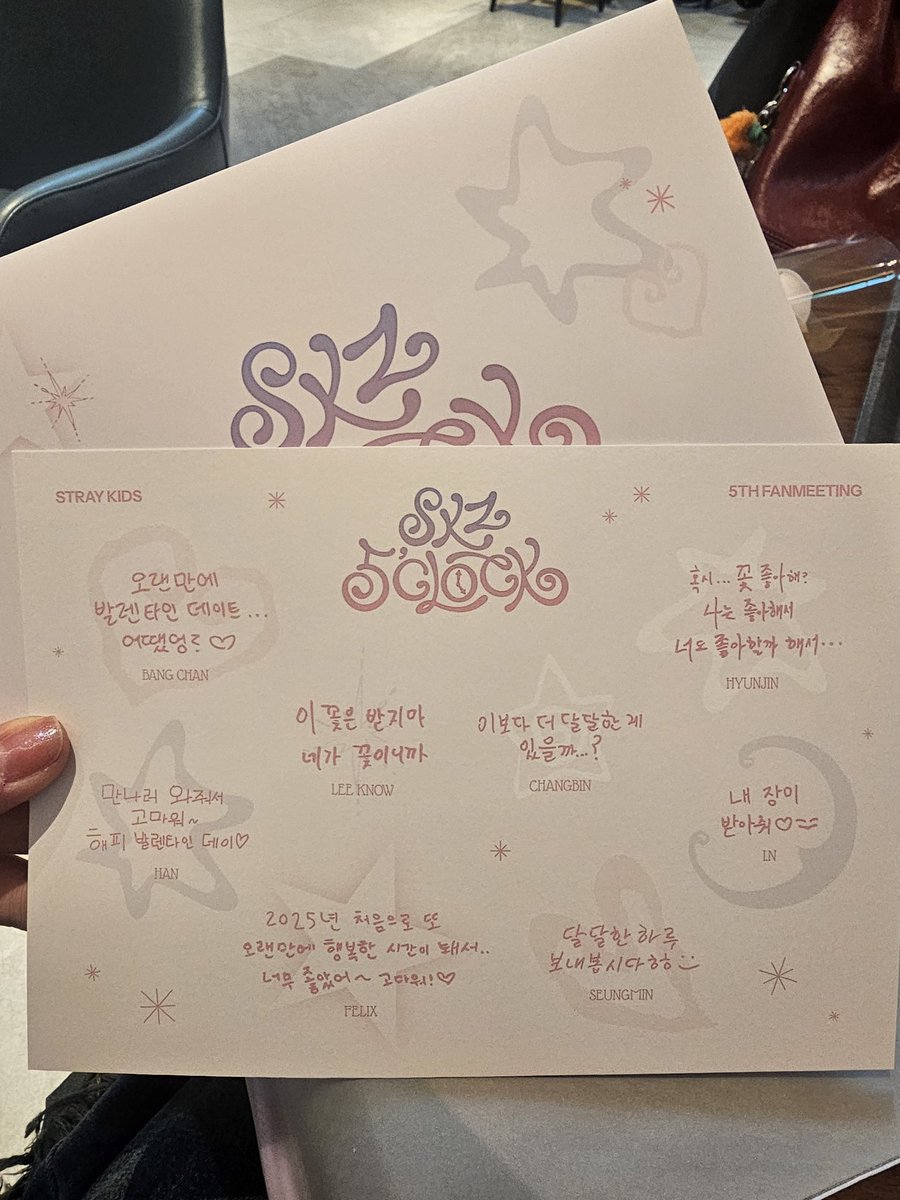 SKZ
STRAY KIDS
5TH FANMEETING
SKZ
5'CLOCK
오랜만에
발렌타인 데이트...
어땠엉? ♡
BANG CHAN
혹시... 꽃 좋아해?
나는 좋아해서
너도 좋아할까 해서...
HYUNJIN
이 꽃은 받지마
네가 꽃이니까
LEE KNOW
이보다 더 달달한 게
있을까...?
CHANGBIN
만나러 와줘서
고마워~
해피 발렌타인 데이♡
HAN
내 장미
받아줘♡
I.N
2025년 처음으로 또
오랜만에 행복한 시간이 돼서..
너무 좋았어~ 고마워!♡
FELIX
달달한 하루
보내봅시다ㅎㅎ
SEUNGMIN